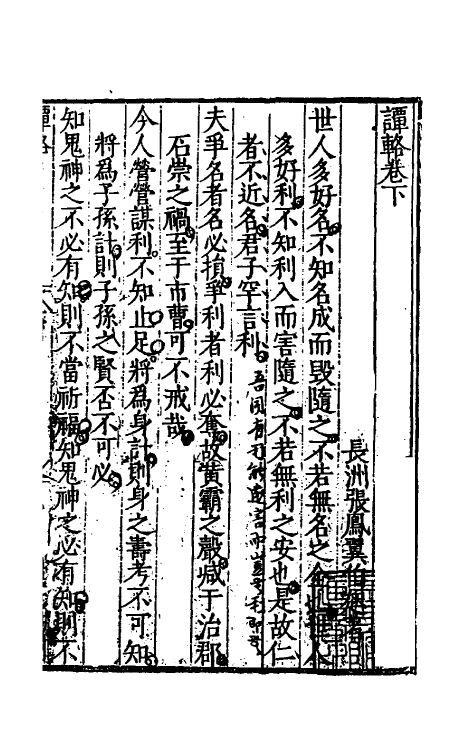 譚輅卷下
長洲張鳳翼伯起著
世人多好名不知名成而毀隨之不若無名之全也世人
多好利不知利入而害隨之不若無利之安也是故仁
者不近名君子罕言利
夫爭名者名必損爭利者利必奪故黃霸之聲减于治郡
石崇之禍至于市曹可不戒哉
今人營營謀利不知止足將爲身計則身之壽考不可知
將爲子孫計則子孫之賢否不可必
知鬼神之不必有知則不當祈福知鬼神之必有知則不
譚輅